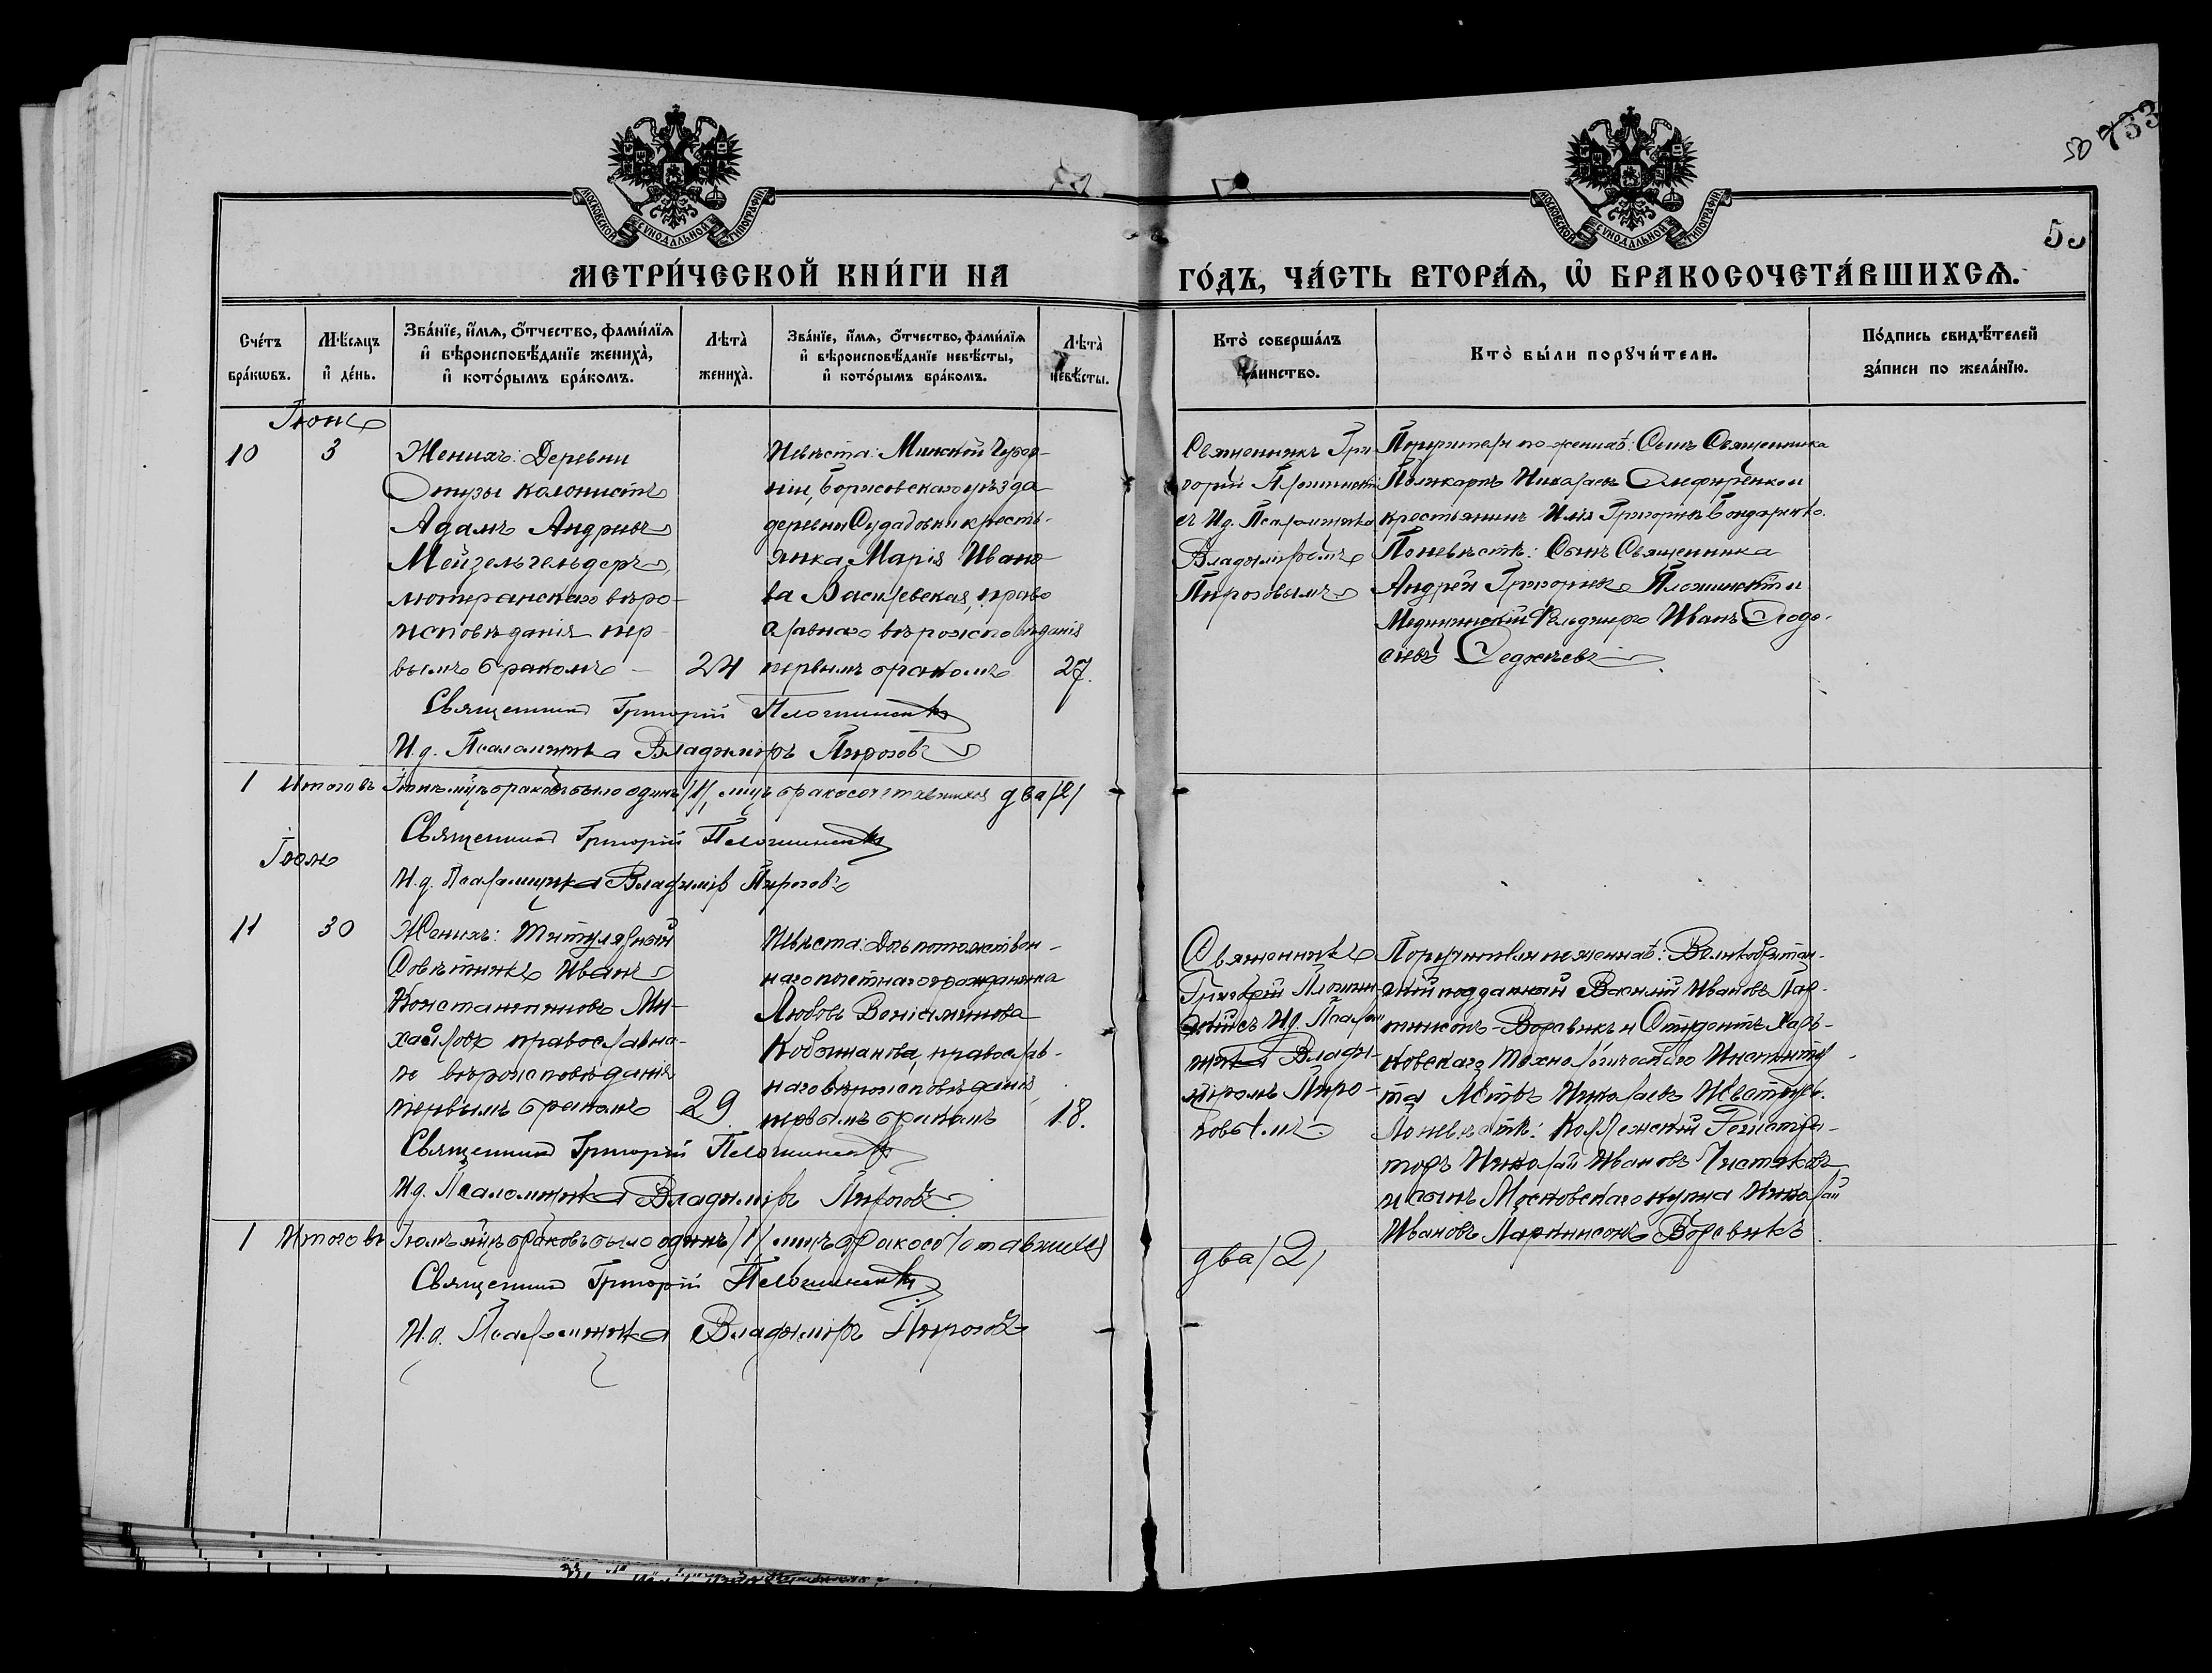 50 733
53
МОСКОВСКОЙ СѴНОДАЛЬНОЙ ТИПОГРАФІИ.
МОСКОВСКОЙ СѴНОДАЛЬНОЙ ТИПОГРАФІИ.
МЕТРИ́ЧЕСКОЙ КНИ́ГИ НА
ГО́ДЪ, ЧА́СТЬ ВТОРА́Ѧ, Ѽ БРАКОСОЧЕТА́ВШИХСѦ.
Сче́тъ бра́кѡвъ.
Мѣ́сѧцъ и҆ де́нь.
Зва́нїе, и҆́мѧ, о҆́тчество, фами́лїѧ
и҆ вѣроисповѣ́данїе жениха̀,
и҆ кото́рымъ бра́комъ.
Лѣта̀ жениха̀.
Зва́нїе, и҆́мѧ, о҆́тчество, фами́лїѧ
и҆ вѣроисповѣ́данїе невѣ́сты,
и҆ кото́рымъ бра́комъ.
Лѣта̀ невѣ́сты.
Кто̀ соверша́лъ
та́инство.
Кто̀ бы́ли порꙋчи́тели.
По́дпись свидѣ́телей
за́писи по жела́нїю.
Іюнь
10
3
Женихъ: Деревни
колонистъ
Адамъ Андреевъ
Мейзельгельдеръ,
лютеранскаго вѣро-
исповѣданія пер-
вымъ бракомъ
24
Невѣста: Минской Губер-
ніи, Борисовскаго уѣзда
деревни Судабовки кресть-
янка Марія Ивано-
ва Василевская, право
славнаго вѣроисповѣданія
первымъ бракомъ
27.
Священникъ Гри-
горій Плошинскій
съ И.д. Псаломщика
Владиміромъ
Пироговымъ
Поручители по женихѣ: Сынъ Священника
Поликарпъ Николаевъ и
крестьянинъ Илія Григорьевъ Бондаренко.
По невѣстѣ: Сынъ Священника
Андрей Григорьевъ Плошинскій и
Медицинскій Фельдшеръ Иванъ Ѳеодо-
сіевъ
Священникъ Григорій Плошинскій
И.д. Псаломщика Владиміръ Пироговъ
1 Итого въ Іюнѣ мцѣ браковъ было одинъ /1/, лицъ бракосочетавшихся два /2/
Священникъ Григорій Плошинскій
Іюль
И.д. Псаломщика Владиміръ Пироговъ
11
30
Женихъ: Титулярный
Совѣтникъ Иванъ
Константиновъ Ми-
хайловъ православна-
го вѣроисповѣданія
первымъ бракомъ
29.
Невѣста: Дочь потомствен-
наго почетнаго гражданина
Любовь Веніаминова
православ-
наго вѣроисповѣданія
первымъ бракомъ
18.
Священникъ
Григорій Плошин-
скій съ И.д. Псалом-
щика Влади-
міромъ Пиро-
говымъ
Поручители по женихѣ: Великобритан-
скій подданный Василій Ивановъ Пар-
кинсонъ-Ворсвикъ и Студентъ Харь-
ковскаго Технологическаго Институ-
та Петръ Николаевъ
По невѣстѣ: Коллежскій Регистра-
торъ Николай Ивановъ Чистяковъ
и сынъ Московскаго купца Николай
Ивановъ Паркинсонъ Ворсвикъ
Священникъ Григорій Плошинскій
И.д. Псаломщика Владиміръ Пироговъ
1 Итого въ Іюлѣ мцѣ браковъ было одинъ /1/ лицъ бракосочетавшихся
два /2/
Священникъ Григорій Плошинскій
И.д. Псаломщика Владиміръ Пироговъ